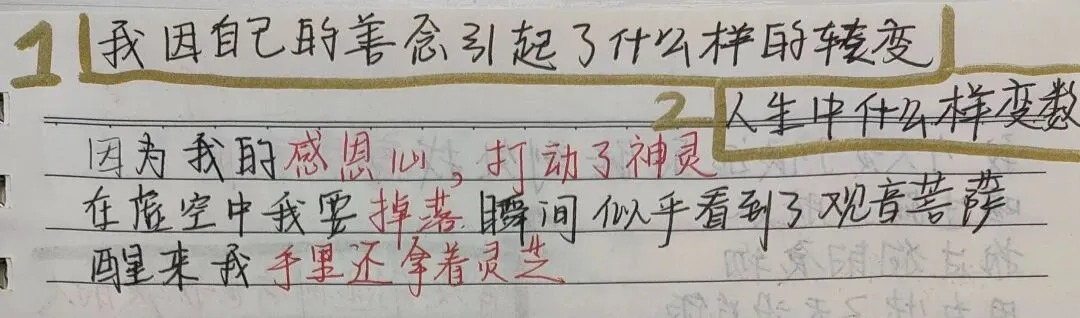 1 我因自己的善念引起了什么样的转变
2 人生中什么样变数
因为我的感恩心,打动了神灵
在虚空中我要掉落瞬间似乎看到了观音菩萨
醒来我手里还拿着灵芝